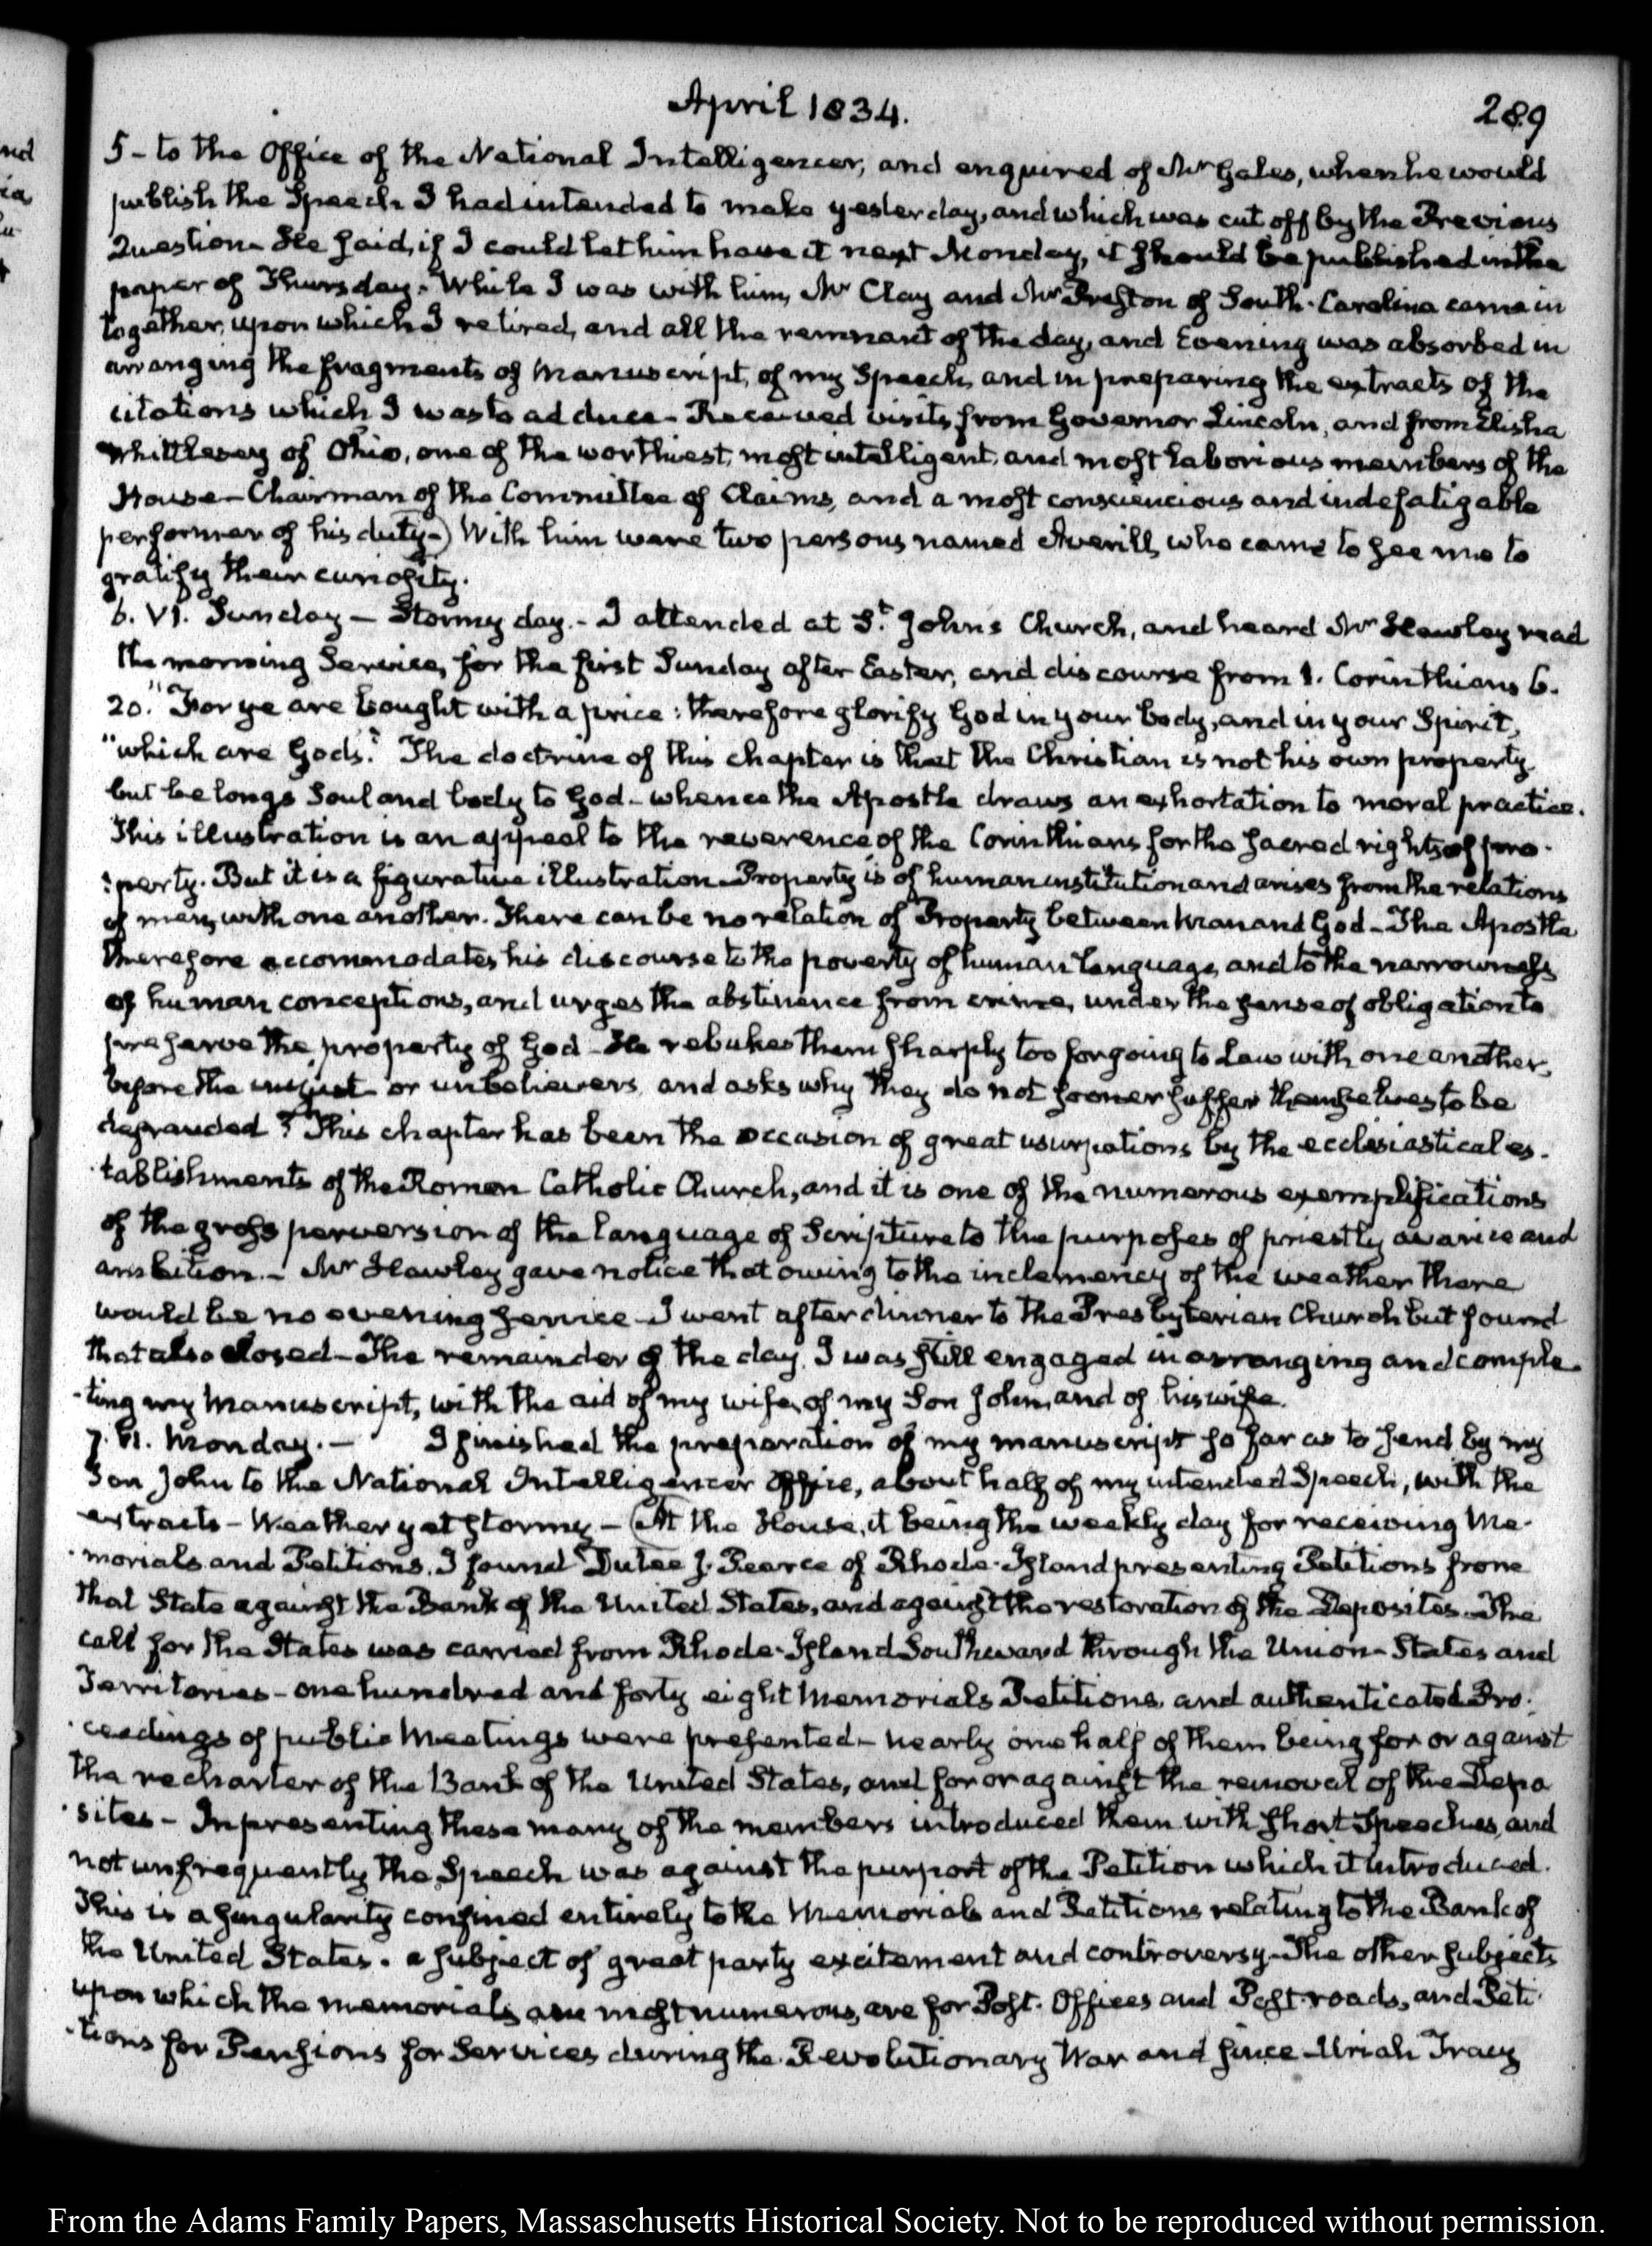 April 1834.
289
5 - to the Office of the National Intelligencer, and enquired of Mr Gales, when he would
publish the Speech I had intended to make yesterday, and which was cut off by the Previous
Question - He said, if I could let him have it next Monday, it should be published in the
paper of Thursday. While I was with him, Mr Clay and Mr Preston of South-Carolina came in
together, upon which I retired, and all the remnant of the day, and Evening was absorbed in
arranging the fragments of Manuscript, of my Speech, and in preparing the extracts of the
citations which I was to adduce - Received visits from Governor Lincoln, and from Elisha
Whittlesey of Ohio, one of the worthiest, most intelligent, and most laborious members of the
House - Chairman of the Committee of Claims, and a most consciencious and indefatigable
performer of his duty -) With him were two persons named Averill, who came to see me to
gratify their curiosity.
6. VI. Sunday - Stormy day. - I attended at St. Johns Church, and heard Mr Hawley read
the morning Service, for the first Sunday after Easter, and discourse from 1. Corinthians 6.
20. "For ye are bought with a price: therefore glorify God in your body, and in your Spirit,
"which are Gods." The doctrine of this chapter is that the Christian is not his own property
but belongs Soul and body to God - whence the Apostle draws an exhortation to moral practice.
This illustration is an appeal to the reverence of the Corinthians for the sacred rights of pro-
:perty. But it is a figurative illustration - Property is of human institution and arises from the relations
of men, with one another. There can be no relation of Property between man and God - The Apostle
therefore accommodates his discourse to the poverty of human language, and to the narrowness
of human conceptions, and urges the abstinence from crime, under the sense of obligation to
preserve the property of God - He rebukes them sharply too for going to Law with one another,
before the unjust or unbelievers, and asks why they do not sooner suffer themselves to be
defrauded? This chapter has been the occasion of great usurpations by the ecclesiastical es-
-tablishments of the Roman Catholic Church, and it is one of the numerous exemplifications
of the gross perversion of the language of Scripture to the purposes of priestly avarice and
ambition. - Mr Hawley gave notice that owing to the inclemency of the weather there
would be no evening service - I went after dinner to the Presbyterian Church but found
that also closed - The remainder of the day, I was still engaged in arranging and comple-
-ting my Manuscript, with the aid of my wife, of my Son John, and of his wife.
7. VI. Monday. - I finished the preparation of my manuscript so far as to send by my
Son John to the National Intelligencer Office, about half of my intended Speech, with the
extracts - Weather yet stormy - (At the House, it being the weekly day for receiving Me-
-morials and Petitions, I found Dutee J. Pearce of Rhode-Island presenting Petitions from
that State against the Bank of the United States, and against the restoration of the Deposites - The
call for the States was carried from Rhode-Island Southward through the Union - States and
Territories - one hundred and forty eight Memorials Petitions, and authenticated Pro-
-ceedings of public Meetings were presented - nearly one half of them being for or against
the recharter of the Bank of the United States, and for or against the removal of the Depo
-sites - In presenting these many of the members introduced them with short speeches, and
not unfrequently the Speech was against the purport of the Petition which it introduced.
This is a singularity confined entirely to the Memorials and Petitions relating to the Bank of
the United States. a subject of great party excitement and controversy - The other subjects
upon which the memorials are most numerous, are for Post-Offices and Post-roads, and Peti-
-tions for Pensions for Services during the Revolutionary War and since - Uriah Tracy
From the Adams Family Papers, Massaschusetts Historical Society. Not to be reproduced without permission.